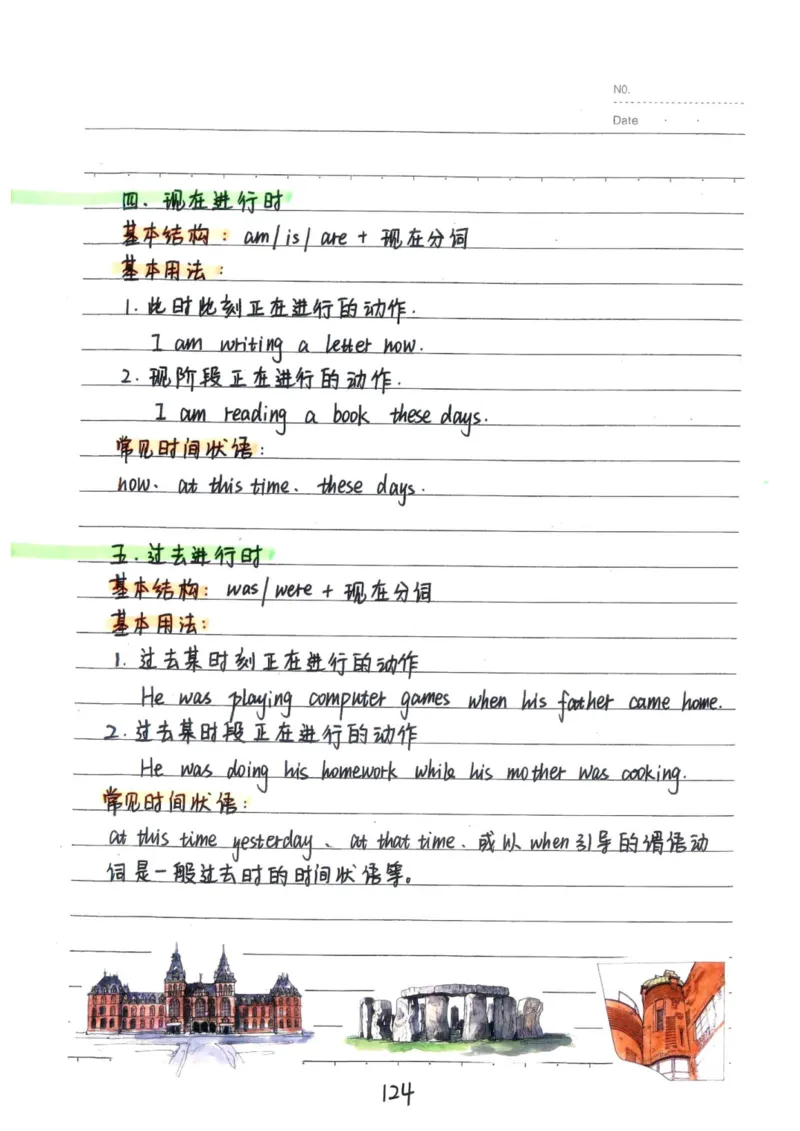 NO.
Date
四. 现在进行时
基本结构: am/is/are + 现在分词
基本用法:
1. 此时此刻正在进行的动作.
I am writing a letter now.
2. 现阶段正在进行的动作.
I am reading a book these days.
常见时间状语:
now、at this time、these days.
五. 过去进行时
基本结构: was/were + 现在分词
基本用法:
1. 过去某时刻正在进行的动作
He was playing computer games when his father came home.
2. 过去某时段正在进行的动作
He was doing his homework while his mother was cooking.
常见时间状语:
at this time yesterday、at that time、或以when引导的谓语动
词是一般过去时的时间状语等。
124